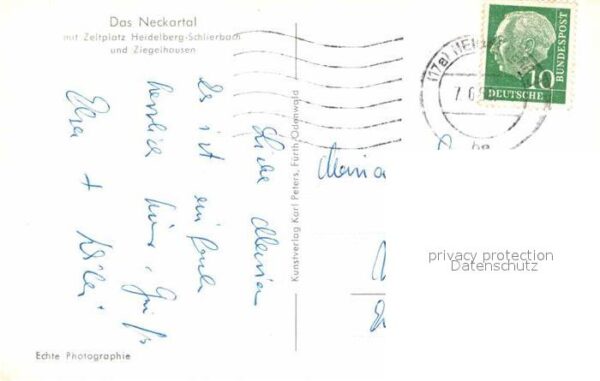 Das Neckartal
mit Zeltplatz Heidelberg-Schlierbach
und Ziegelhausen
Liebe Maria
Es ist einfach
herrlich hier. Gruß
Elsa +
Echte Photographie
Kunstverlag Karl Peters, Fürth/Odenwald
(17a) HEI
7.6.
10
DEUTSCHE
BUNDESPOST
Maria
privacy protection
Datenschutz